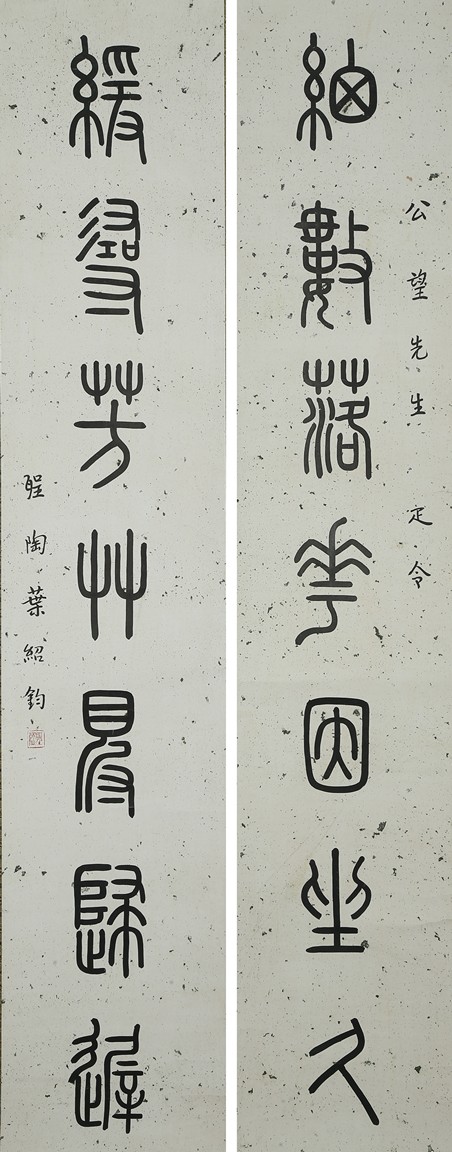 公望先生 疋令
細數落花因坐久
緩尋芳草得歸遲
聖陶葉紹鈞